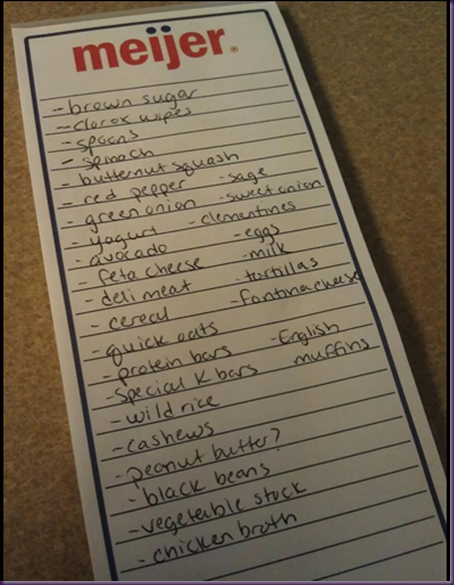 meijer®
-brown sugar
-clorox wipes
-spoons
-spinach
-butternut squash
-red pepper -sage
-green onion -sweet onion
-yogurt -clementines
-avocado -eggs
-feta cheese -milk
-deli meat -tortillas
-cereal -fontina cheese
-quick oats
-protein bars -English
-special K bars muffins
-wild rice
-cashews
-peanut butter?
-black beans
-vegetable stock
-chicken broth